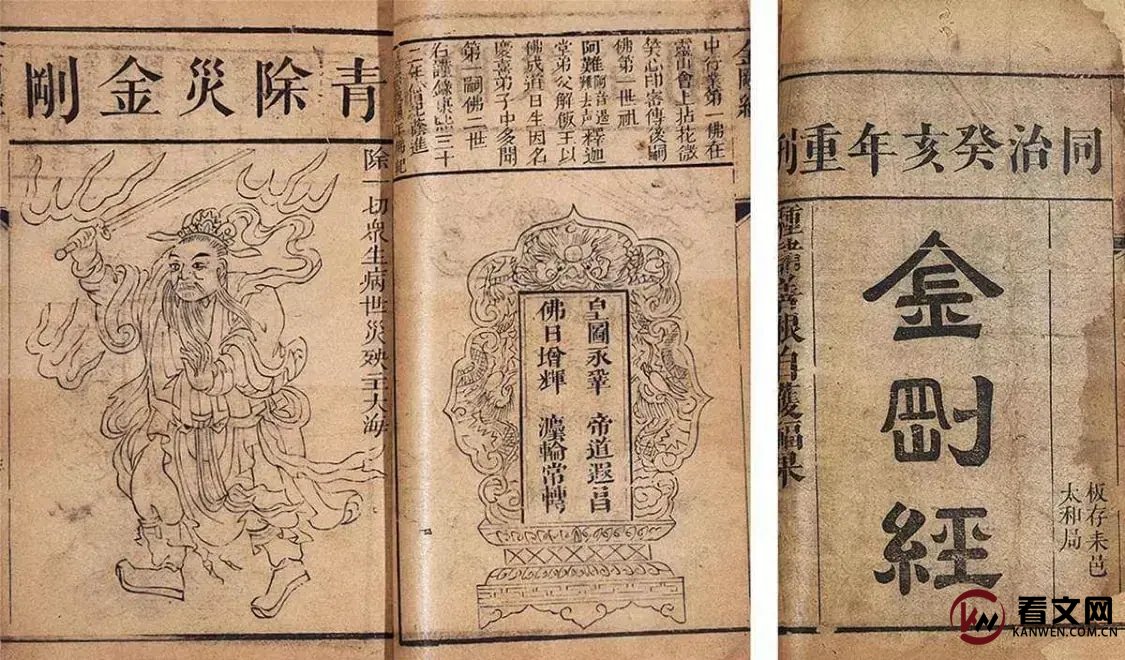 中行業第一佛在
靈山會上拈花微
笑心印密傳後嗣
佛第一世祖
阿難阿音遏難去声釋迦
堂弟父斛飯王以
佛成道日生因名
慶喜弟子中多聞
第一嗣佛二世
皇圖永鞏 帝道遐昌
佛日增輝 灋輪常轉
青除災金剛
除一切衆生病世災殃主大海
同治癸亥年重刊
板存耒邑
太和局
金剛經
種諸善根自獲福果
看文网
KANWEN.COM.CN